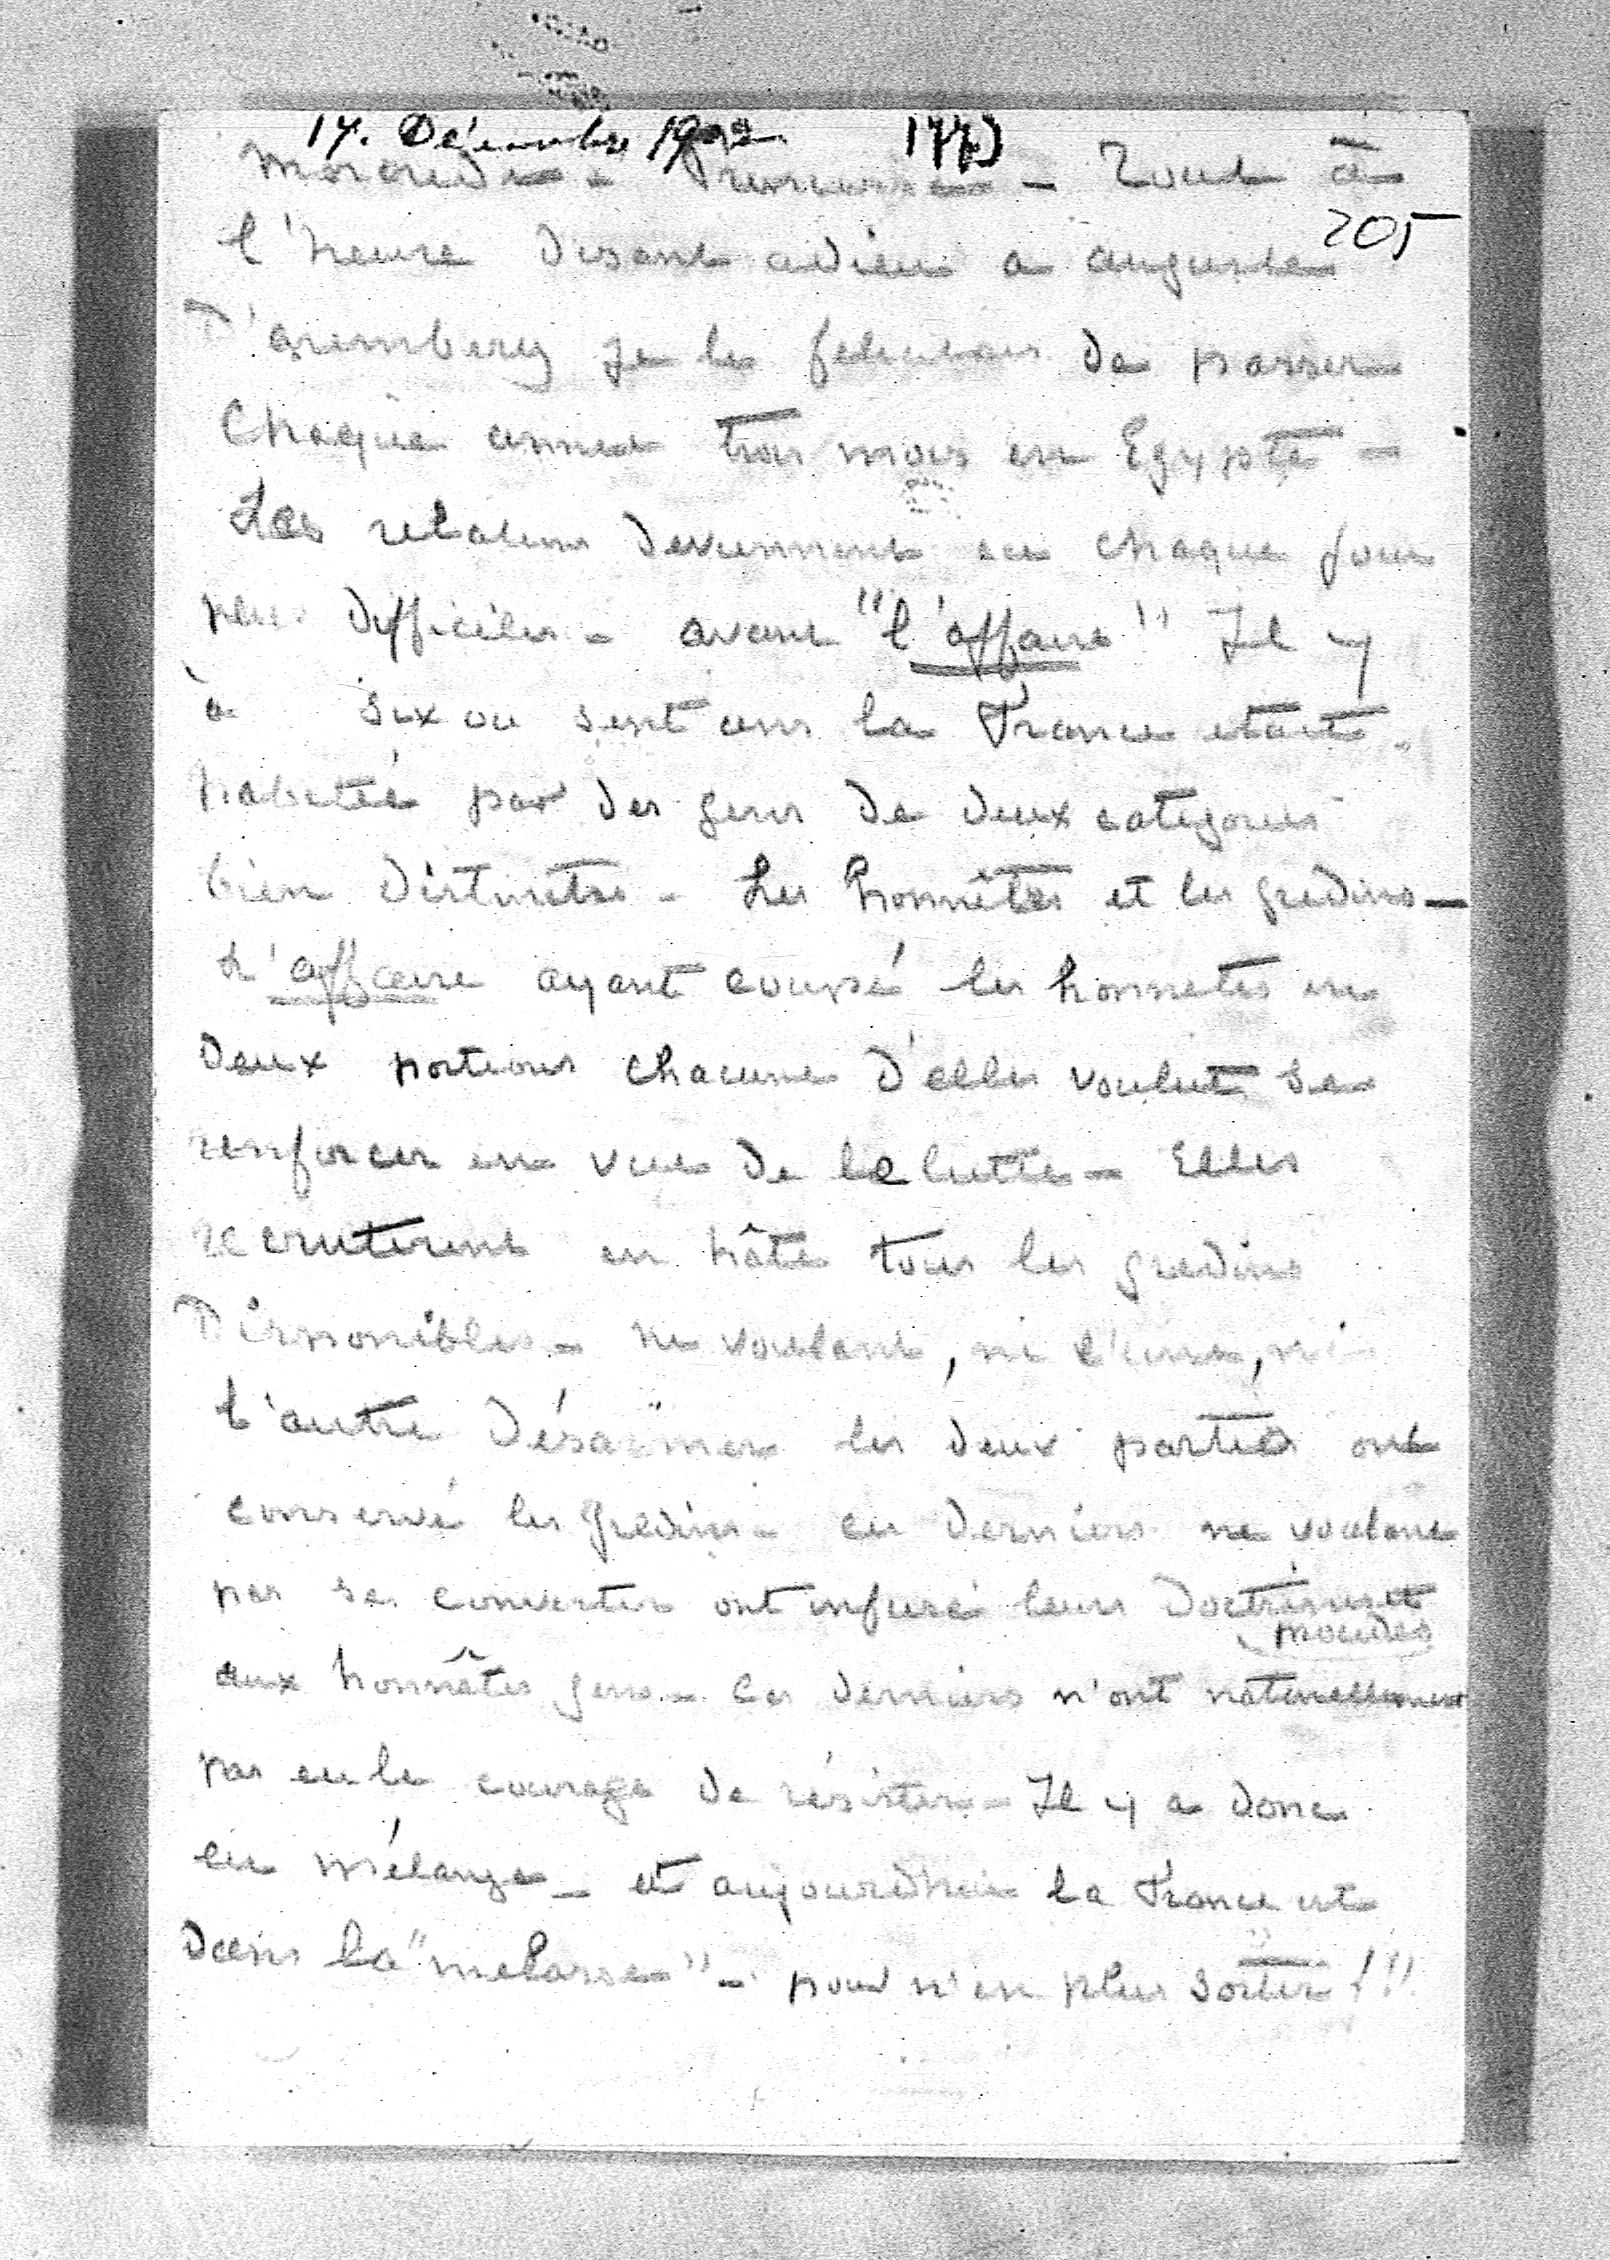 14. Décembre 1902
Tout à
205
l'heure disant adieu a auguste
D'aremberg je le felicitais de passer
Chaque année trois mois en Egypte -
Les relations deviennent ici chaque jour
plus difficiles - avant "l'affaire" Il y
à six ou sept ans la France etait
habitée par des gens de deux categories
bien distinctes - Les honnêtes et les gredins -
L'affaire ayant coupé les honnetes en
Deux portions chacune d'elles voulut se
renforcer en vue de la lutte - Elles
recruterent en hâte tous les gredins
Disponibles - ne voulant, ni l'une, ni
l'autre désarmer les deux parties ont
conservé les gredins - ces derniers ne voulant
pas se convertir ont infusé leurs doctrines et
moeurs
aux honnêtes gens - Ces derniers n'ont naturellement
pas eu le courage de résister - Il y a donc
eu mélange - et aujourdhui la France est
dans la "melasse" - pour n'en plus sortir !!!